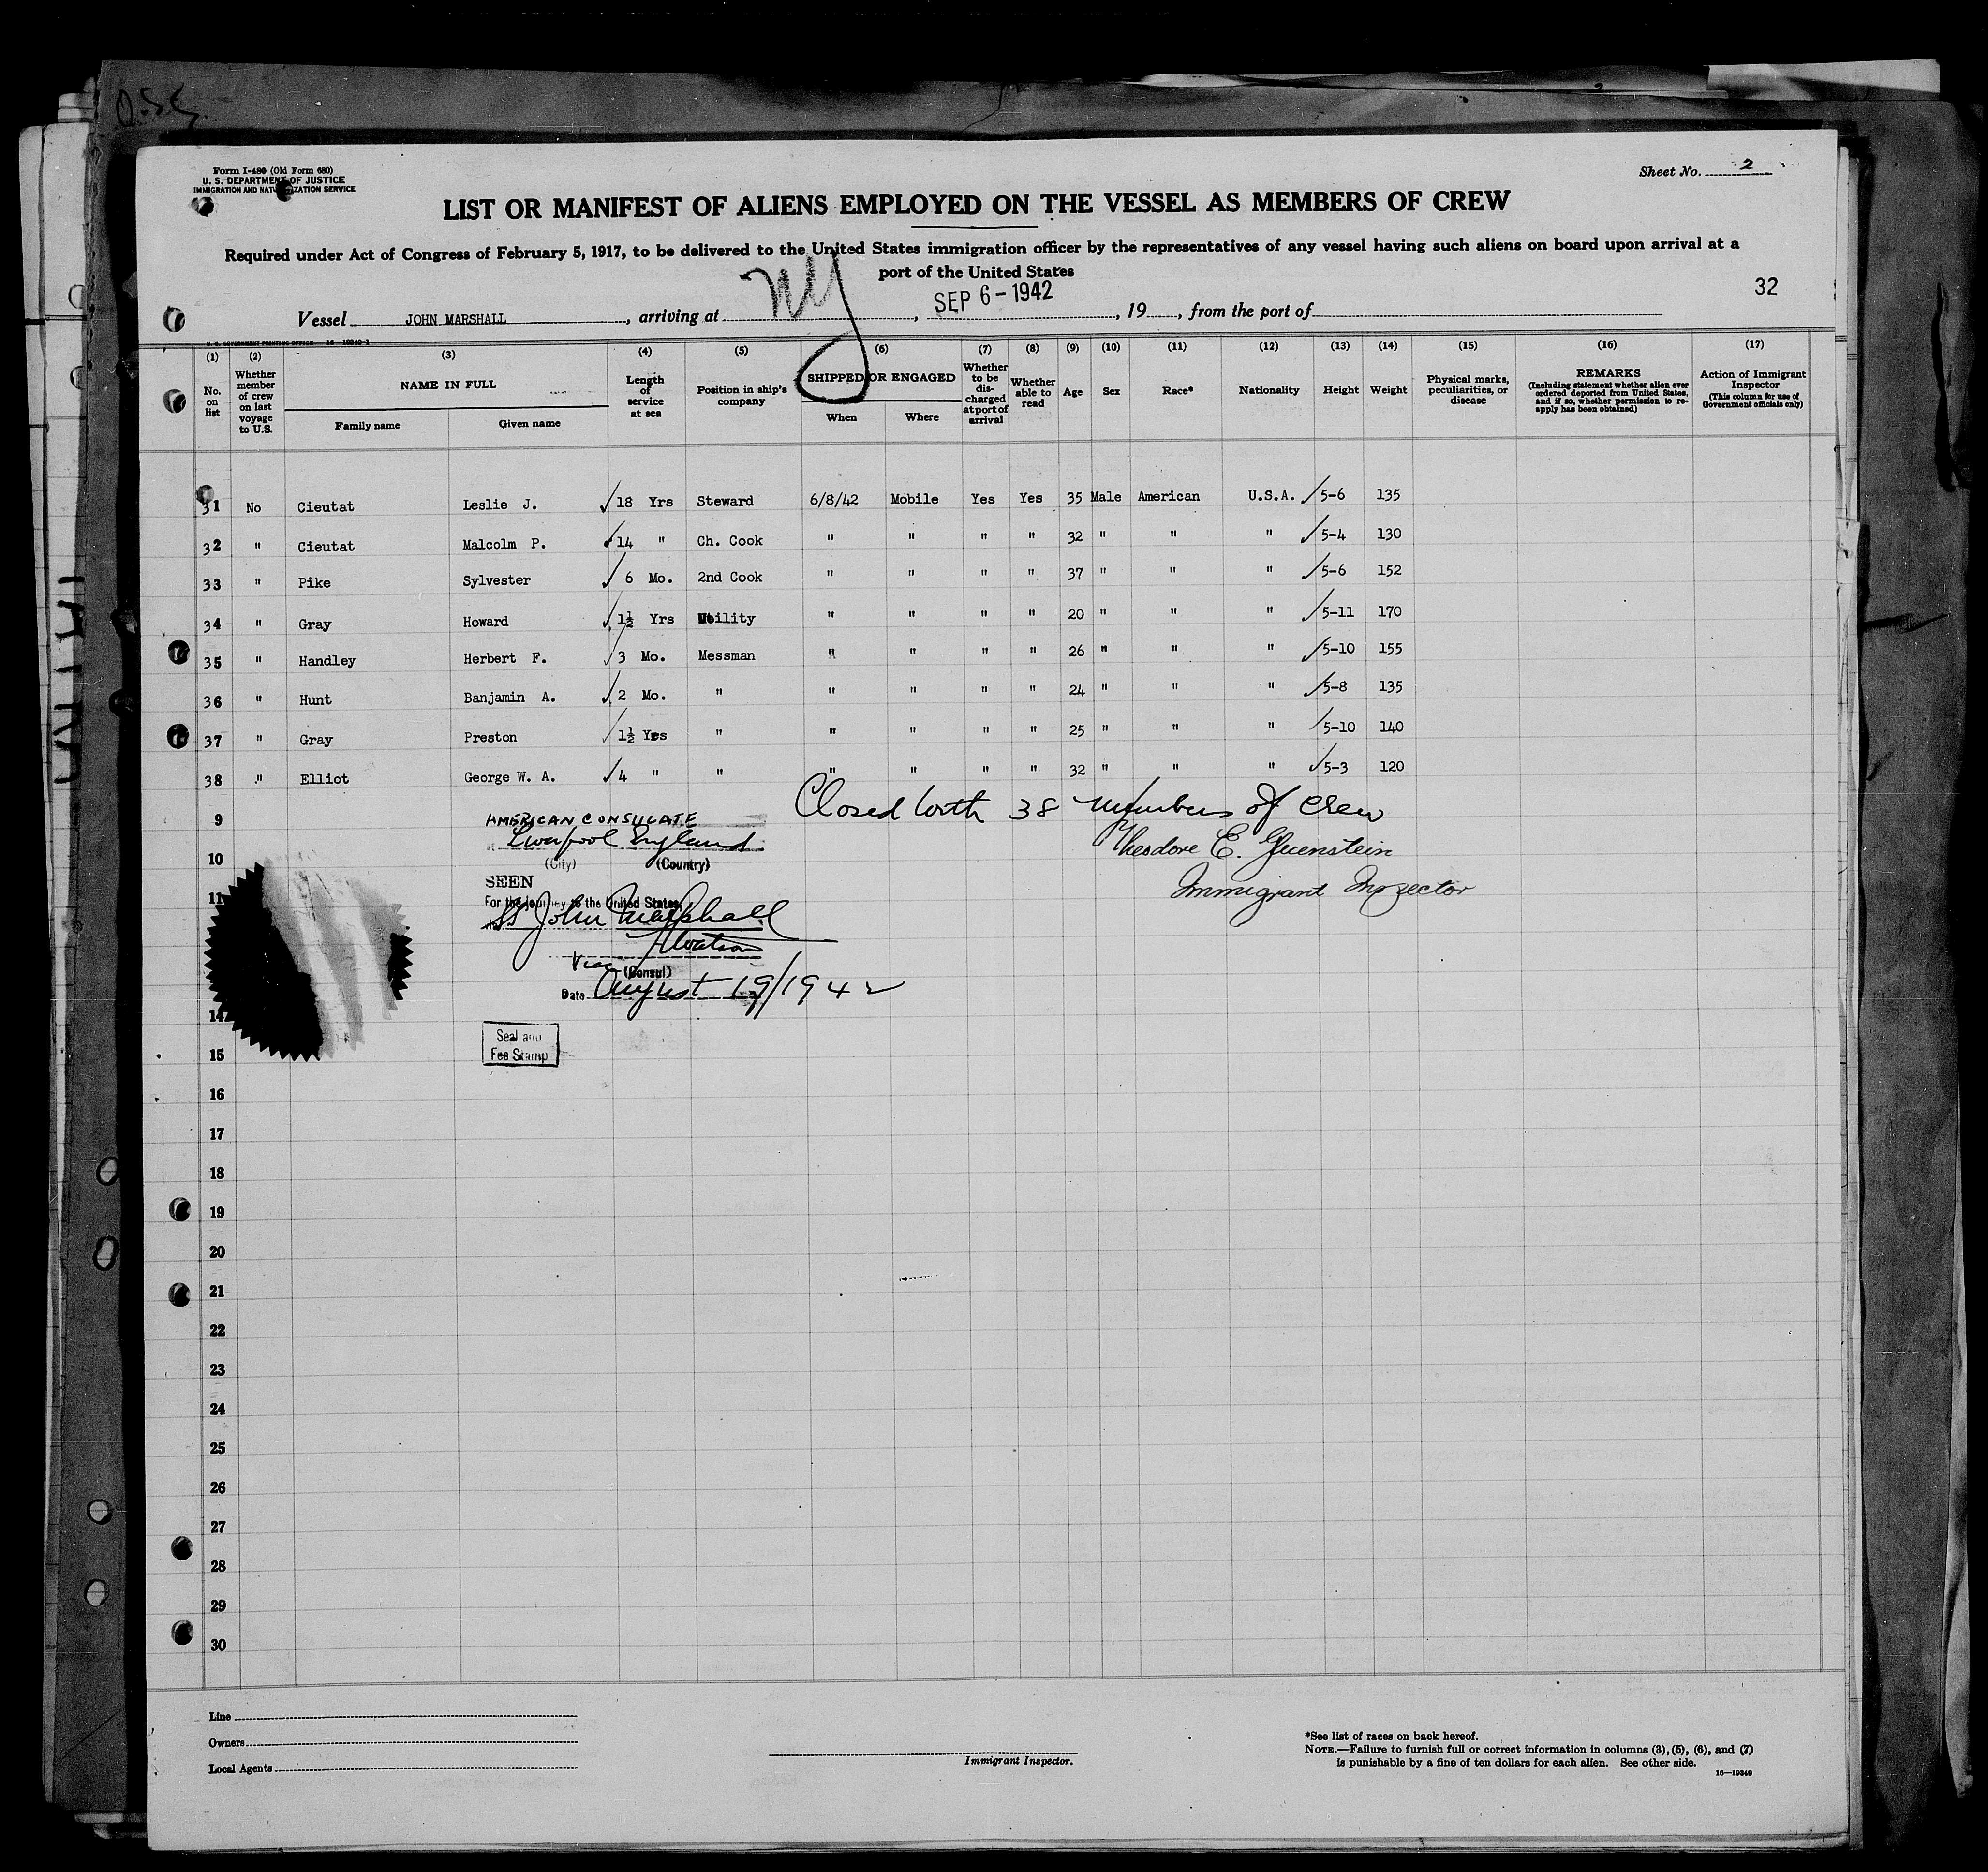 O.S.G.
Form I-480 (Old Form 680)
U. S. DEPARTMENT OF JUSTICE
IMMIGRATION AND NATURALIZATION SERVICE
Sheet No. 2
LIST OR MANIFEST OF ALIENS EMPLOYED ON THE VESSEL AS MEMBERS OF CREW
Required under Act of Congress of February 5, 1917, to be delivered to the United States immigration officer by the representatives of any vessel having such aliens on board upon arrival at a
port of the United States
32
Vessel JOHN MARSHALL, arriving at NY, SEP 6-1942, 19, from the port of
U. S. GOVERNMENT PRINTING OFFICE 16-19349-1
(1) (2) (3) (4) (5) (6) (7) (8) (9) (10) (11) (12) (13) (14) (15) (16) (17)
No. on list
Whether member of crew on last voyage to U.S.
NAME IN FULL
Family name
Given name
Length of service at sea
Position in ship's company
SHIPPED OR ENGAGED
When
Where
Whether to be discharged at port of arrival
Whether able to read
Age
Sex
Race*
Nationality
Height
Weight
Physical marks, peculiarities, or disease
REMARKS
(Including statement whether alien ever ordered deported from United States, and if so, whether permission to reapply has been obtained)
Action of Immigrant Inspector
(This column for use of Government officials only)
31 No Cieutat Leslie J. ✓18 Yrs Steward 6/8/42 Mobile Yes Yes 35 Male American U.S.A. ✓5-6 135
32 " Cieutat Malcolm P. ✓14 " Ch. Cook " " " " 32 " " " ✓5-4 130
33 " Pike Sylvester ✓6 Mo. 2nd Cook " " " " 37 " " " ✓5-6 152
34 " Gray Howard ✓1½ Yrs Utility " " " " 20 " " " ✓5-11 170
35 " Handley Herbert F. ✓3 Mo. Messman " " " " 26 " " " ✓5-10 155
36 " Hunt Banjamin A. ✓2 Mo. " " " " " 24 " " " ✓5-8 135
37 " Gray Preston ✓1½ Yrs " " " " " 25 " " " ✓5-10 140
38 " Elliot George W. A. ✓4 " " " " " " 32 " " " ✓5-3 120
Closed with 38 members of crew
Theodore E.
Immigrant Inspector
9
AMERICAN CONSULATE
Liverpool England
(City) (Country)
10
SEEN
11
For the journey to the United States
SS John Marshall
Watson
Vice (Consul)
Date August 19/1942
14
Seal and
Fee Stamp
15
16
17
18
19
20
21
22
23
24
25
26
27
28
29
30
Line
Owners
Local Agents
Immigrant Inspector.
*See list of races on back hereof.
NOTE.—Failure to furnish full or correct information in columns (3), (5), (6), and (7)
is punishable by a fine of ten dollars for each alien. See other side.
16—19349